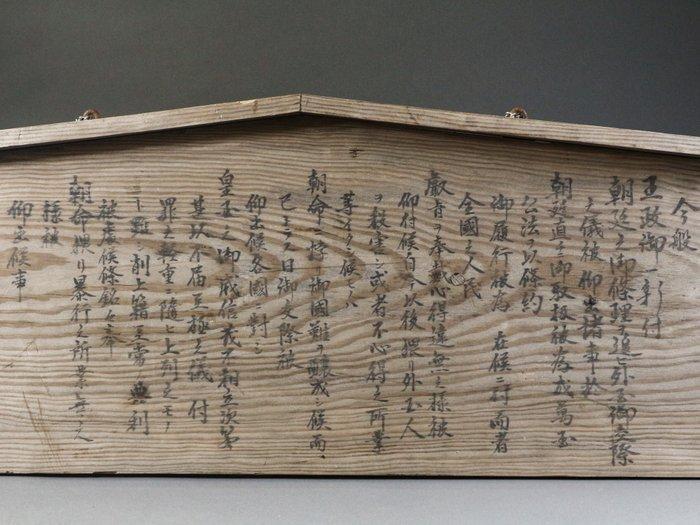 今般
王政御一新ニ付
朝廷之御條理ヲ追ヒ外国御交際
之儀被 仰出諸事於
朝廷直ニ御取扱被為成萬国
公法ヲ以條約
御履行被為 在候ニ付而者
全國之人民
叡旨ヲ奉戴シ心得違無之様被
仰付候自今以後猥リ外国人
ヲ殺害シ或者不心得之所業
等イタシ候モノハ
朝命ニ悖リ御國難ヲ醸成シ候而
已ナラス一旦御交際被
仰出候各國ニ對シ
皇国之御威信茂不相立次第
甚以不届至極之儀ニ付
罪之軽重ニ隨ヒ士列之モノ
ト雖モ削士籍至當之典刑
被處候條銘々奉
朝命猥リ暴行之所業無之
様被
仰出候事